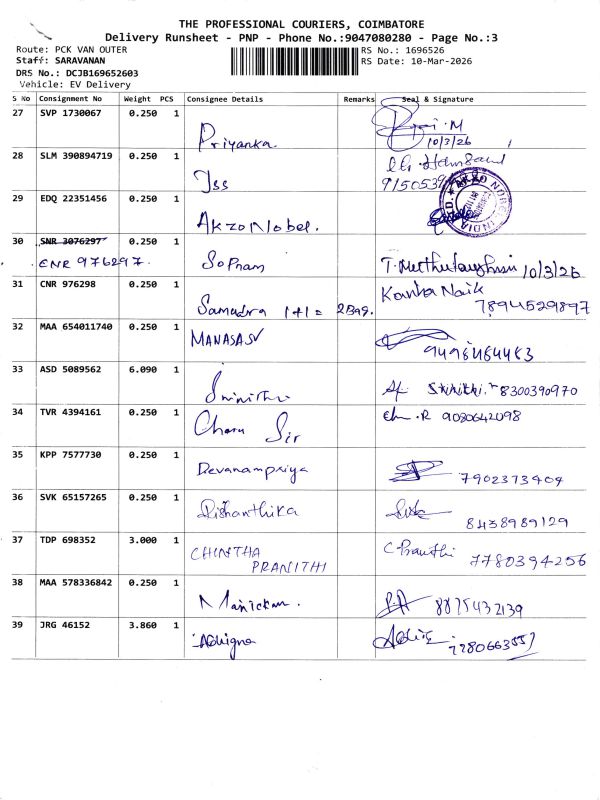 THE PROFESSIONAL COURIERS, COIMBATORE
Delivery Runsheet - PNP - Phone No.:9047080280 - Page No.:3
Route: PCK VAN OUTER
RS No.: 1696526
Staff: SARAVANAN
RS Date: 10-Mar-2026
DRS No.: DCJB169652603
Vehicle: EV Delivery
S No Consignment No Weight PCS Consignee Details Remarks Seal & Signature
27 SVP 1730067 0.250 1 Priyanka M
10/3/26
28 SLM 390894719 0.250 1 Jss
29 EDQ 22351456 0.250 1 AkzoNobel.
30 SNR 3076297 0.250 1
CNR 976297. Sopnam 10/3/26
31 CNR 976298 0.250 1 Samudra 1+1= 2Bag. Kanha Naik
7894529897
32 MAA 654011740 0.250 1 MANASA SV
9496464483
33 ASD 5089562 6.090 1 Srinithi Srinithi. 8300390970
34 TVR 4394161 0.250 1 Charu Sir R 9080642098
35 KPP 7577730 0.250 1 Devanampriya 7902373404
36 SVK 65157265 0.250 1 Rishanthika
8438989129
37 TDP 698352 3.000 1 CHINTHA
PRANITHI
C Pranithi 7780394256
38 MAA 578336842 0.250 1 Manickam. 8875432139
39 JRG 46152 3.860 1